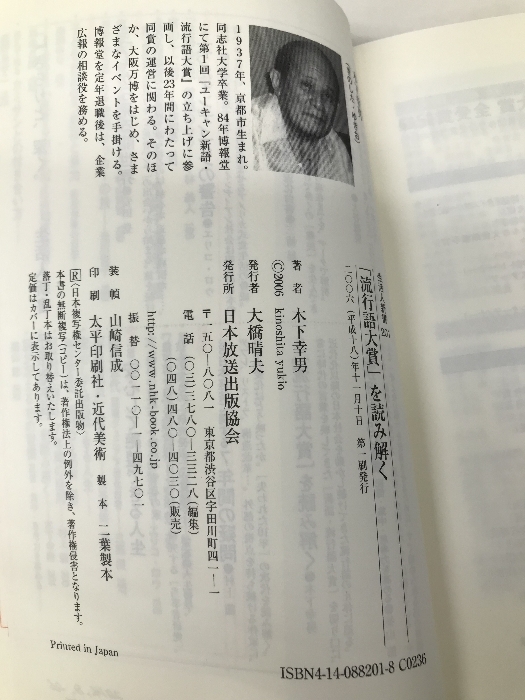 1937年、京都市生まれ。
同志社大学卒業。84年博報堂
にて第1回「ユーキャン新語・
流行語大賞」の立ち上げに参
画し、以後23年間にわたって
同賞の運営に関わる。そのほ
か、大阪万博をはじめ、さま
ざまなイベントを手掛ける。
博報堂を定年退職後は、企業
広報の相談役を務める。
「流行語大賞」を読み解く
二〇〇六(平成十八)年十一月十日 第一刷発行
著者 木下幸男
©2006 kinoshita yukio
発行者 大橋晴夫
発行所 日本放送出版協会
〒一五〇-八〇八一 東京都渋谷区宇田川町四一-一
電話(〇三)三七八〇-三三二八(編集)
(〇四八)四八〇-四〇三〇(販売)
http://www.nhk-book.co.jp
振替 〇〇一一〇-一-四九七〇一
装幀 山崎信成
印刷 太平印刷社・近代美術 製本 二葉製本
R〈日本複写権センター委託出版物〉
本書の無断複写(コピー)は、著作権法上の例外を除き、著作権侵害となります。
落丁・乱丁本はお取り替えいたします。
定価はカバーに表示してあります。
Printed in Japan
ISBN4-14-088201-8 C0236